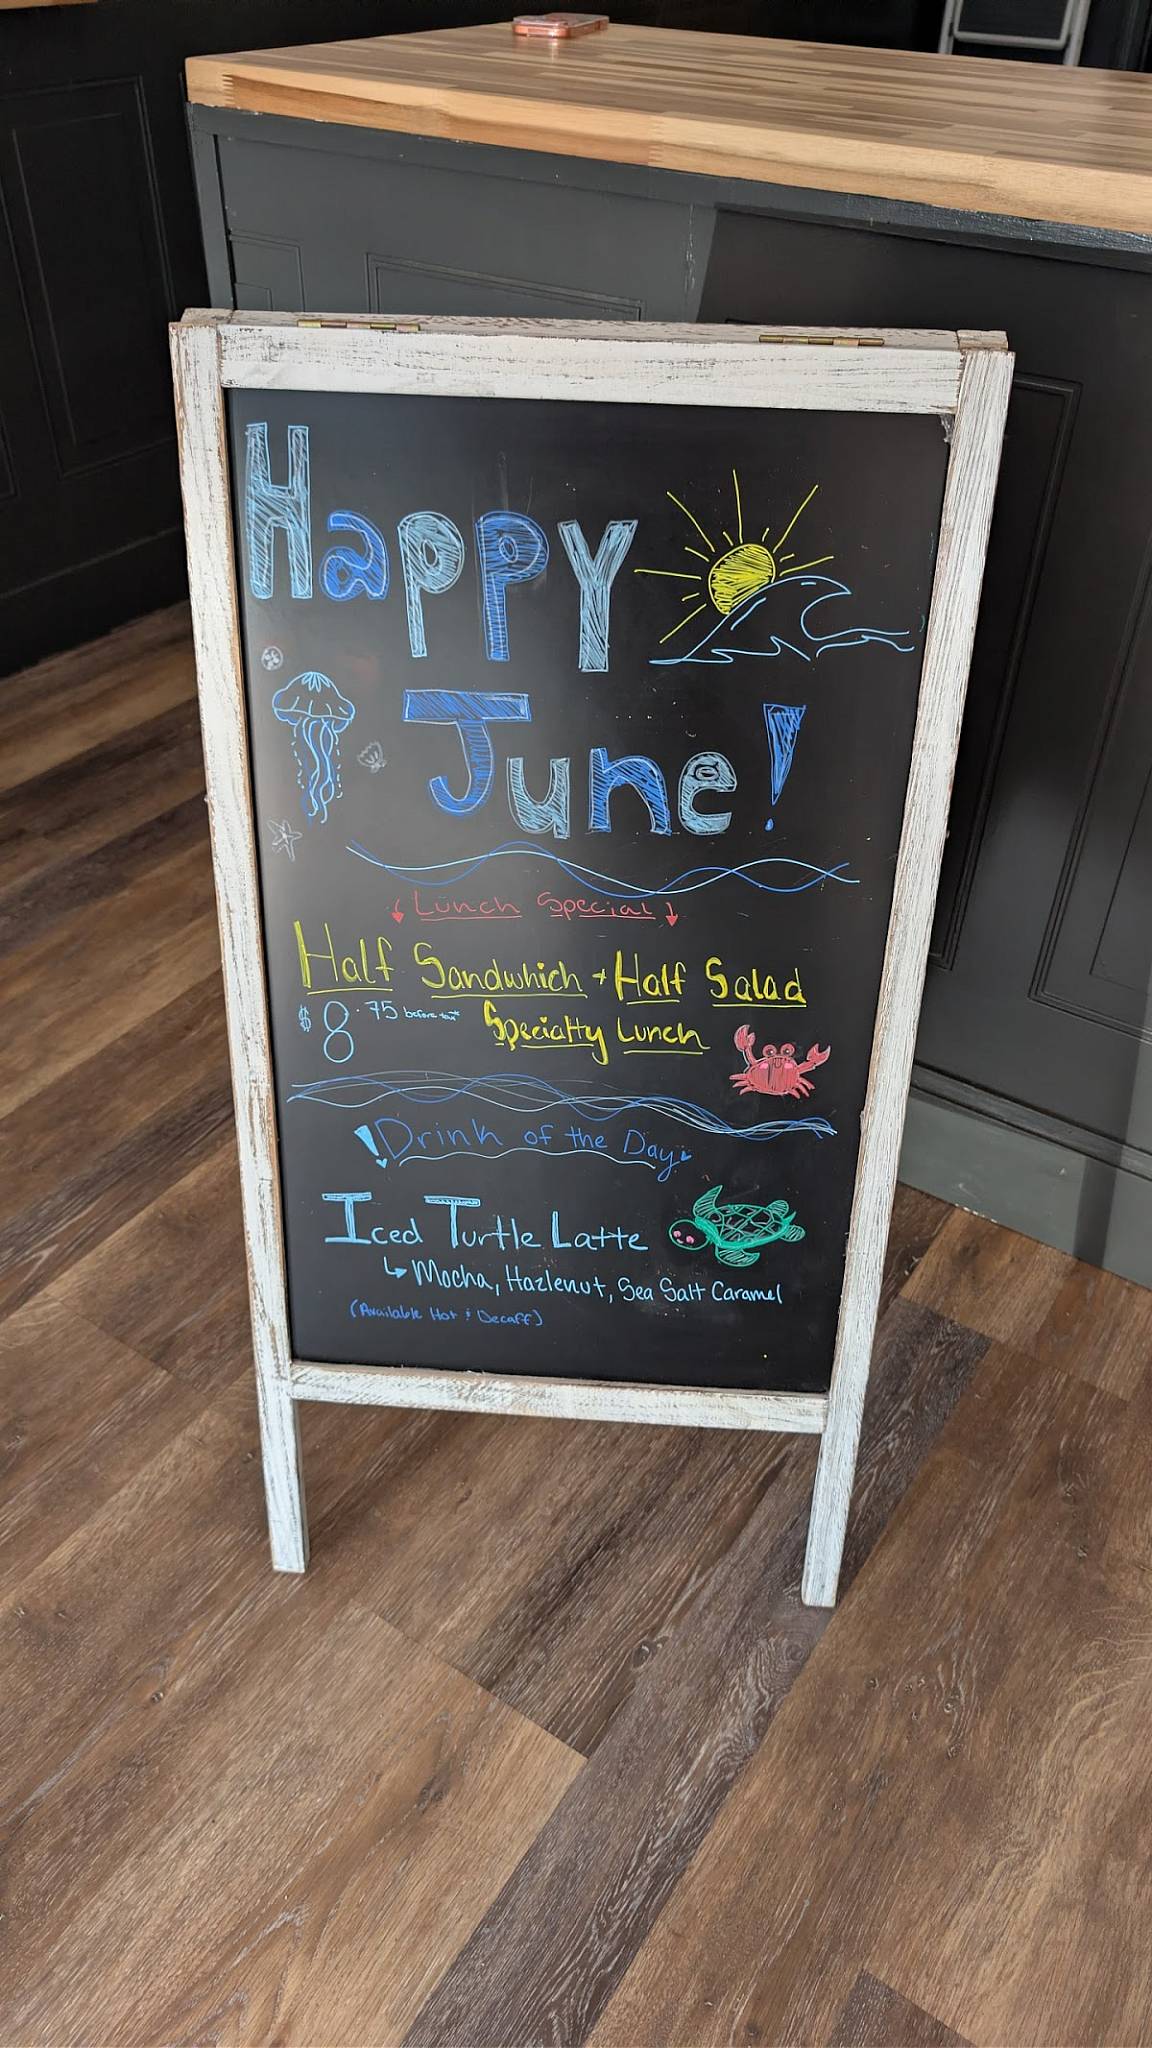 Happy
June!
Lunch Special
Half Sandwhich + Half Salad
$8.75 before tax* Specialty Lunch
!Drink of the Day
Iced Turtle Latte
↳ Mocha, Hazlenut, Sea Salt Caramel
(Available Hot & Decaff)